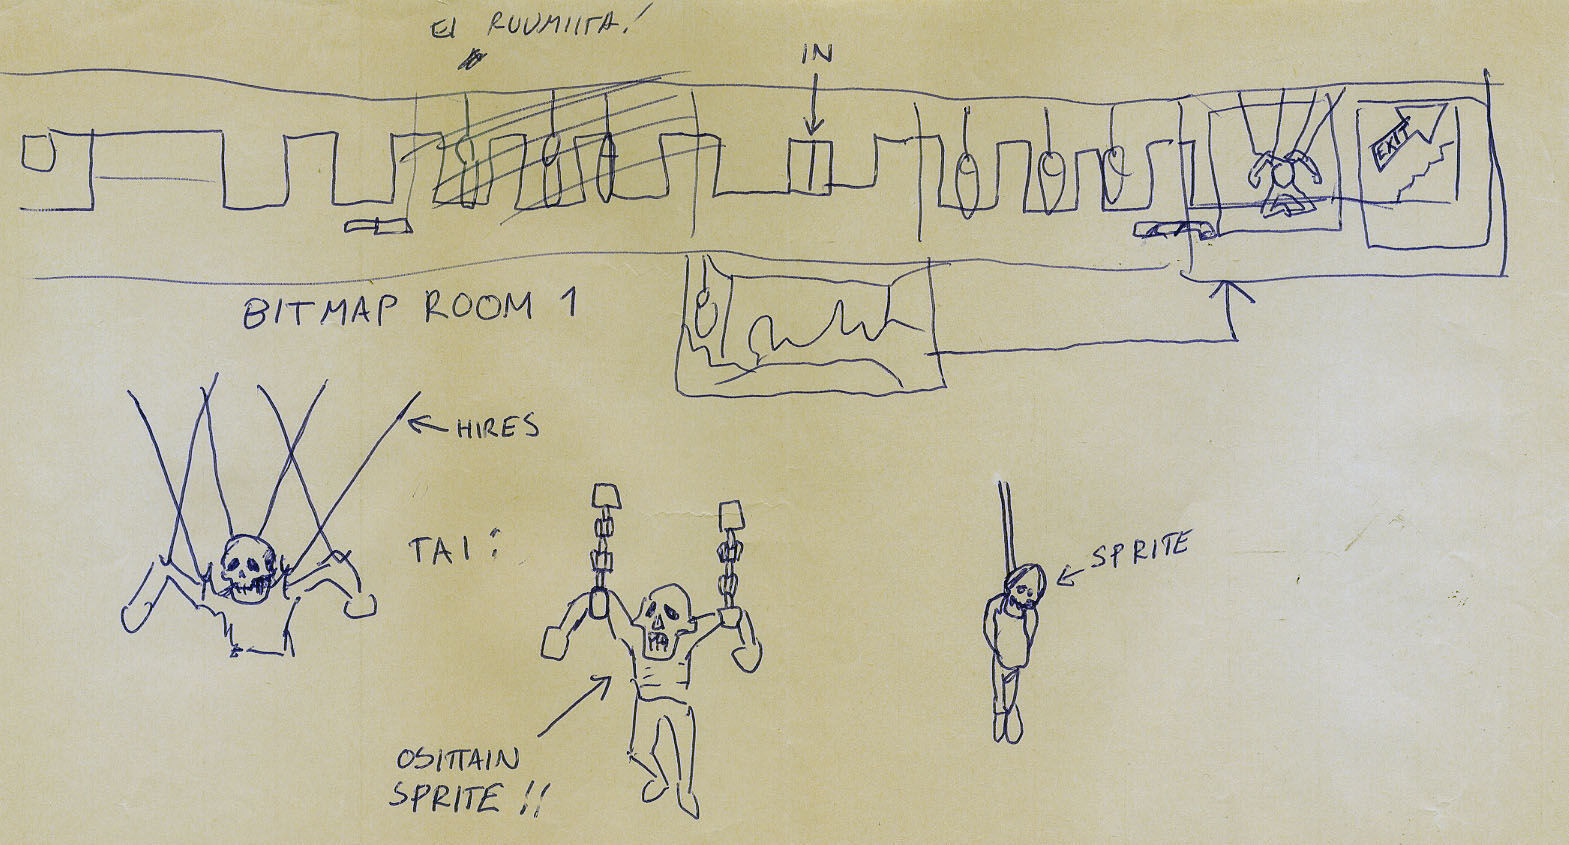 EI RUUMIITA!
IN
EXIT
BITMAP ROOM 1
HIRES
TAI:
SPRITE
OSITTAIN
SPRITE !!